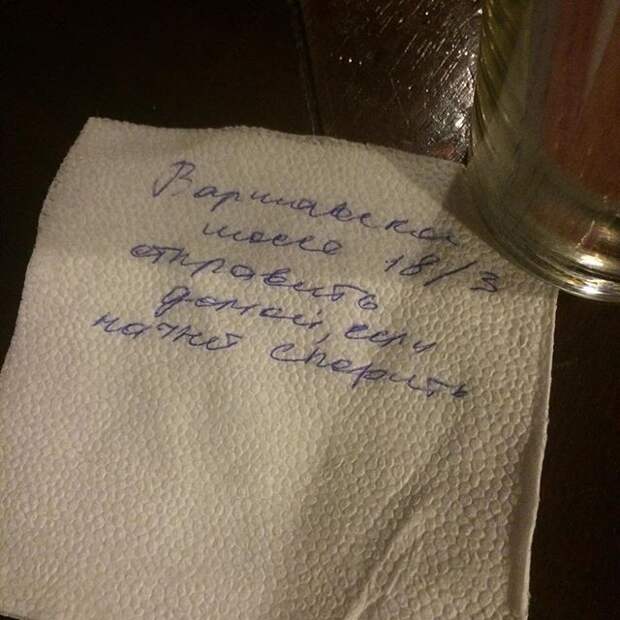 Варшавское
шоссе 18/3
отправить
домой, если
начнёт спорить